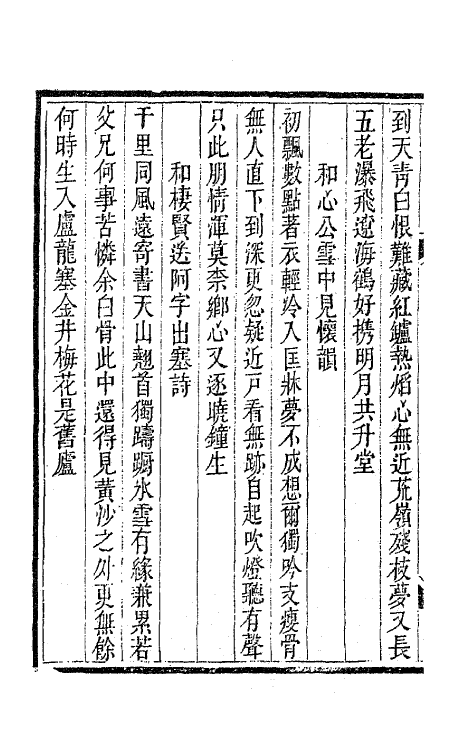 到天青白恨難藏紅鑪熱焰心無近荒嶺殘枝夢又長
五老瀑飛遼海鶴好携明月共升堂
和心公雪中見懷韻
初飄數點著衣輕冷入匡牀夢不成想爾獨吟支瘦骨
無人直下到深更忽疑近戸看無跡自起吹燈聽有聲
只此朋情渾莫柰鄉心又逐曉鐘生
和棲賢送阿字出塞詩
千里同風遠寄書天山翹首獨躊蹰水雪有緣兼累若
父兄何事苦憐余白骨此中還得見黃沙之外更無餘
何時生入盧龍塞金井梅花是舊廬